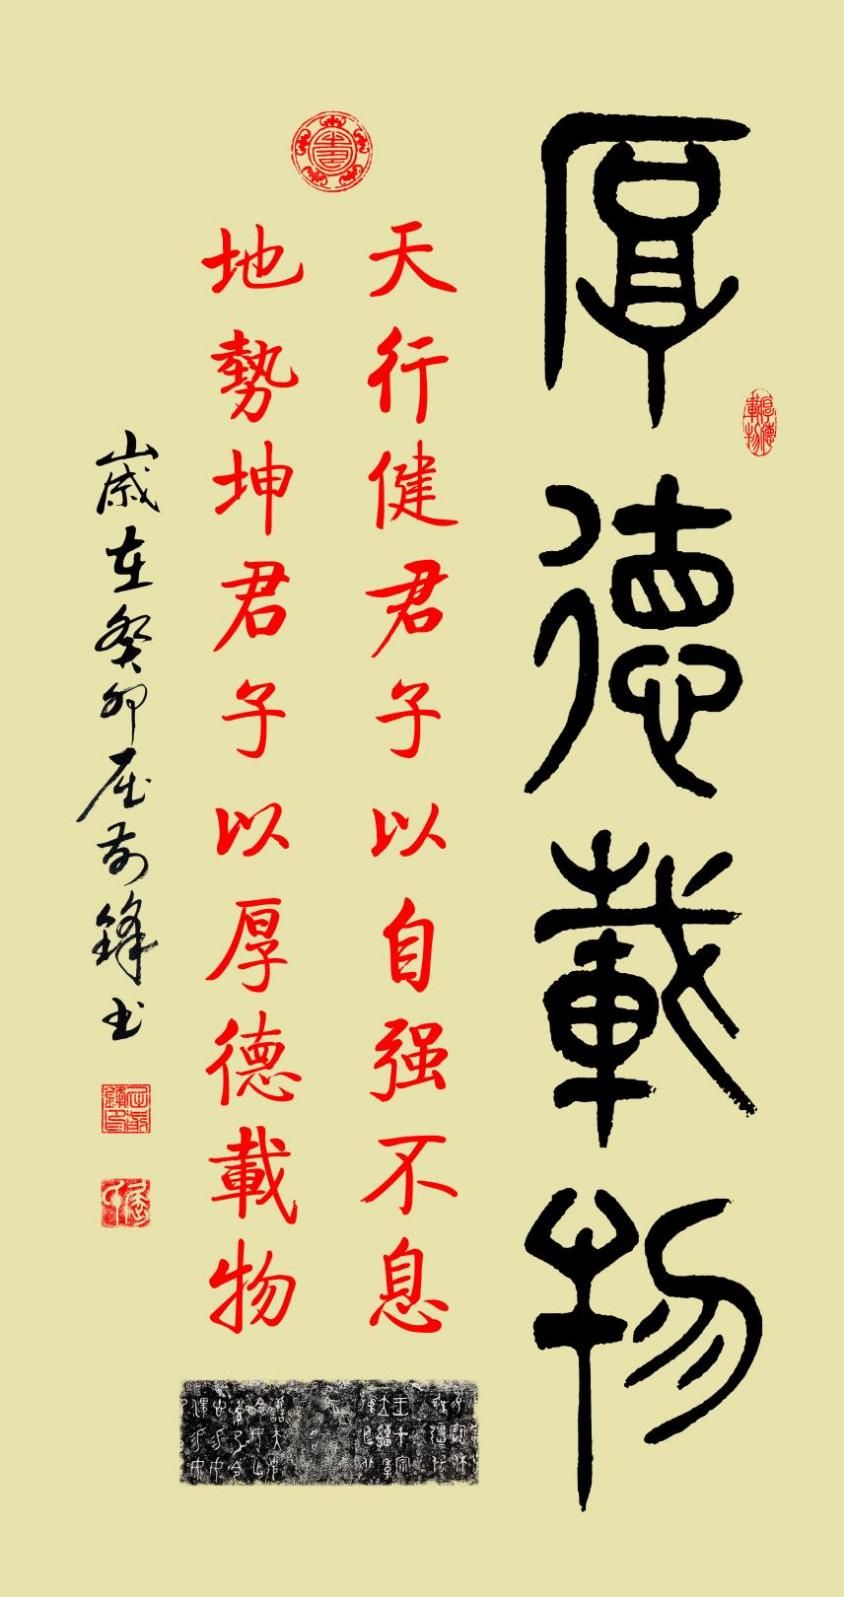 厚德載物
厚德載物
天行健君子以自强不息
地勢坤君子以厚德載物
歲在癸卯屈前鋒书